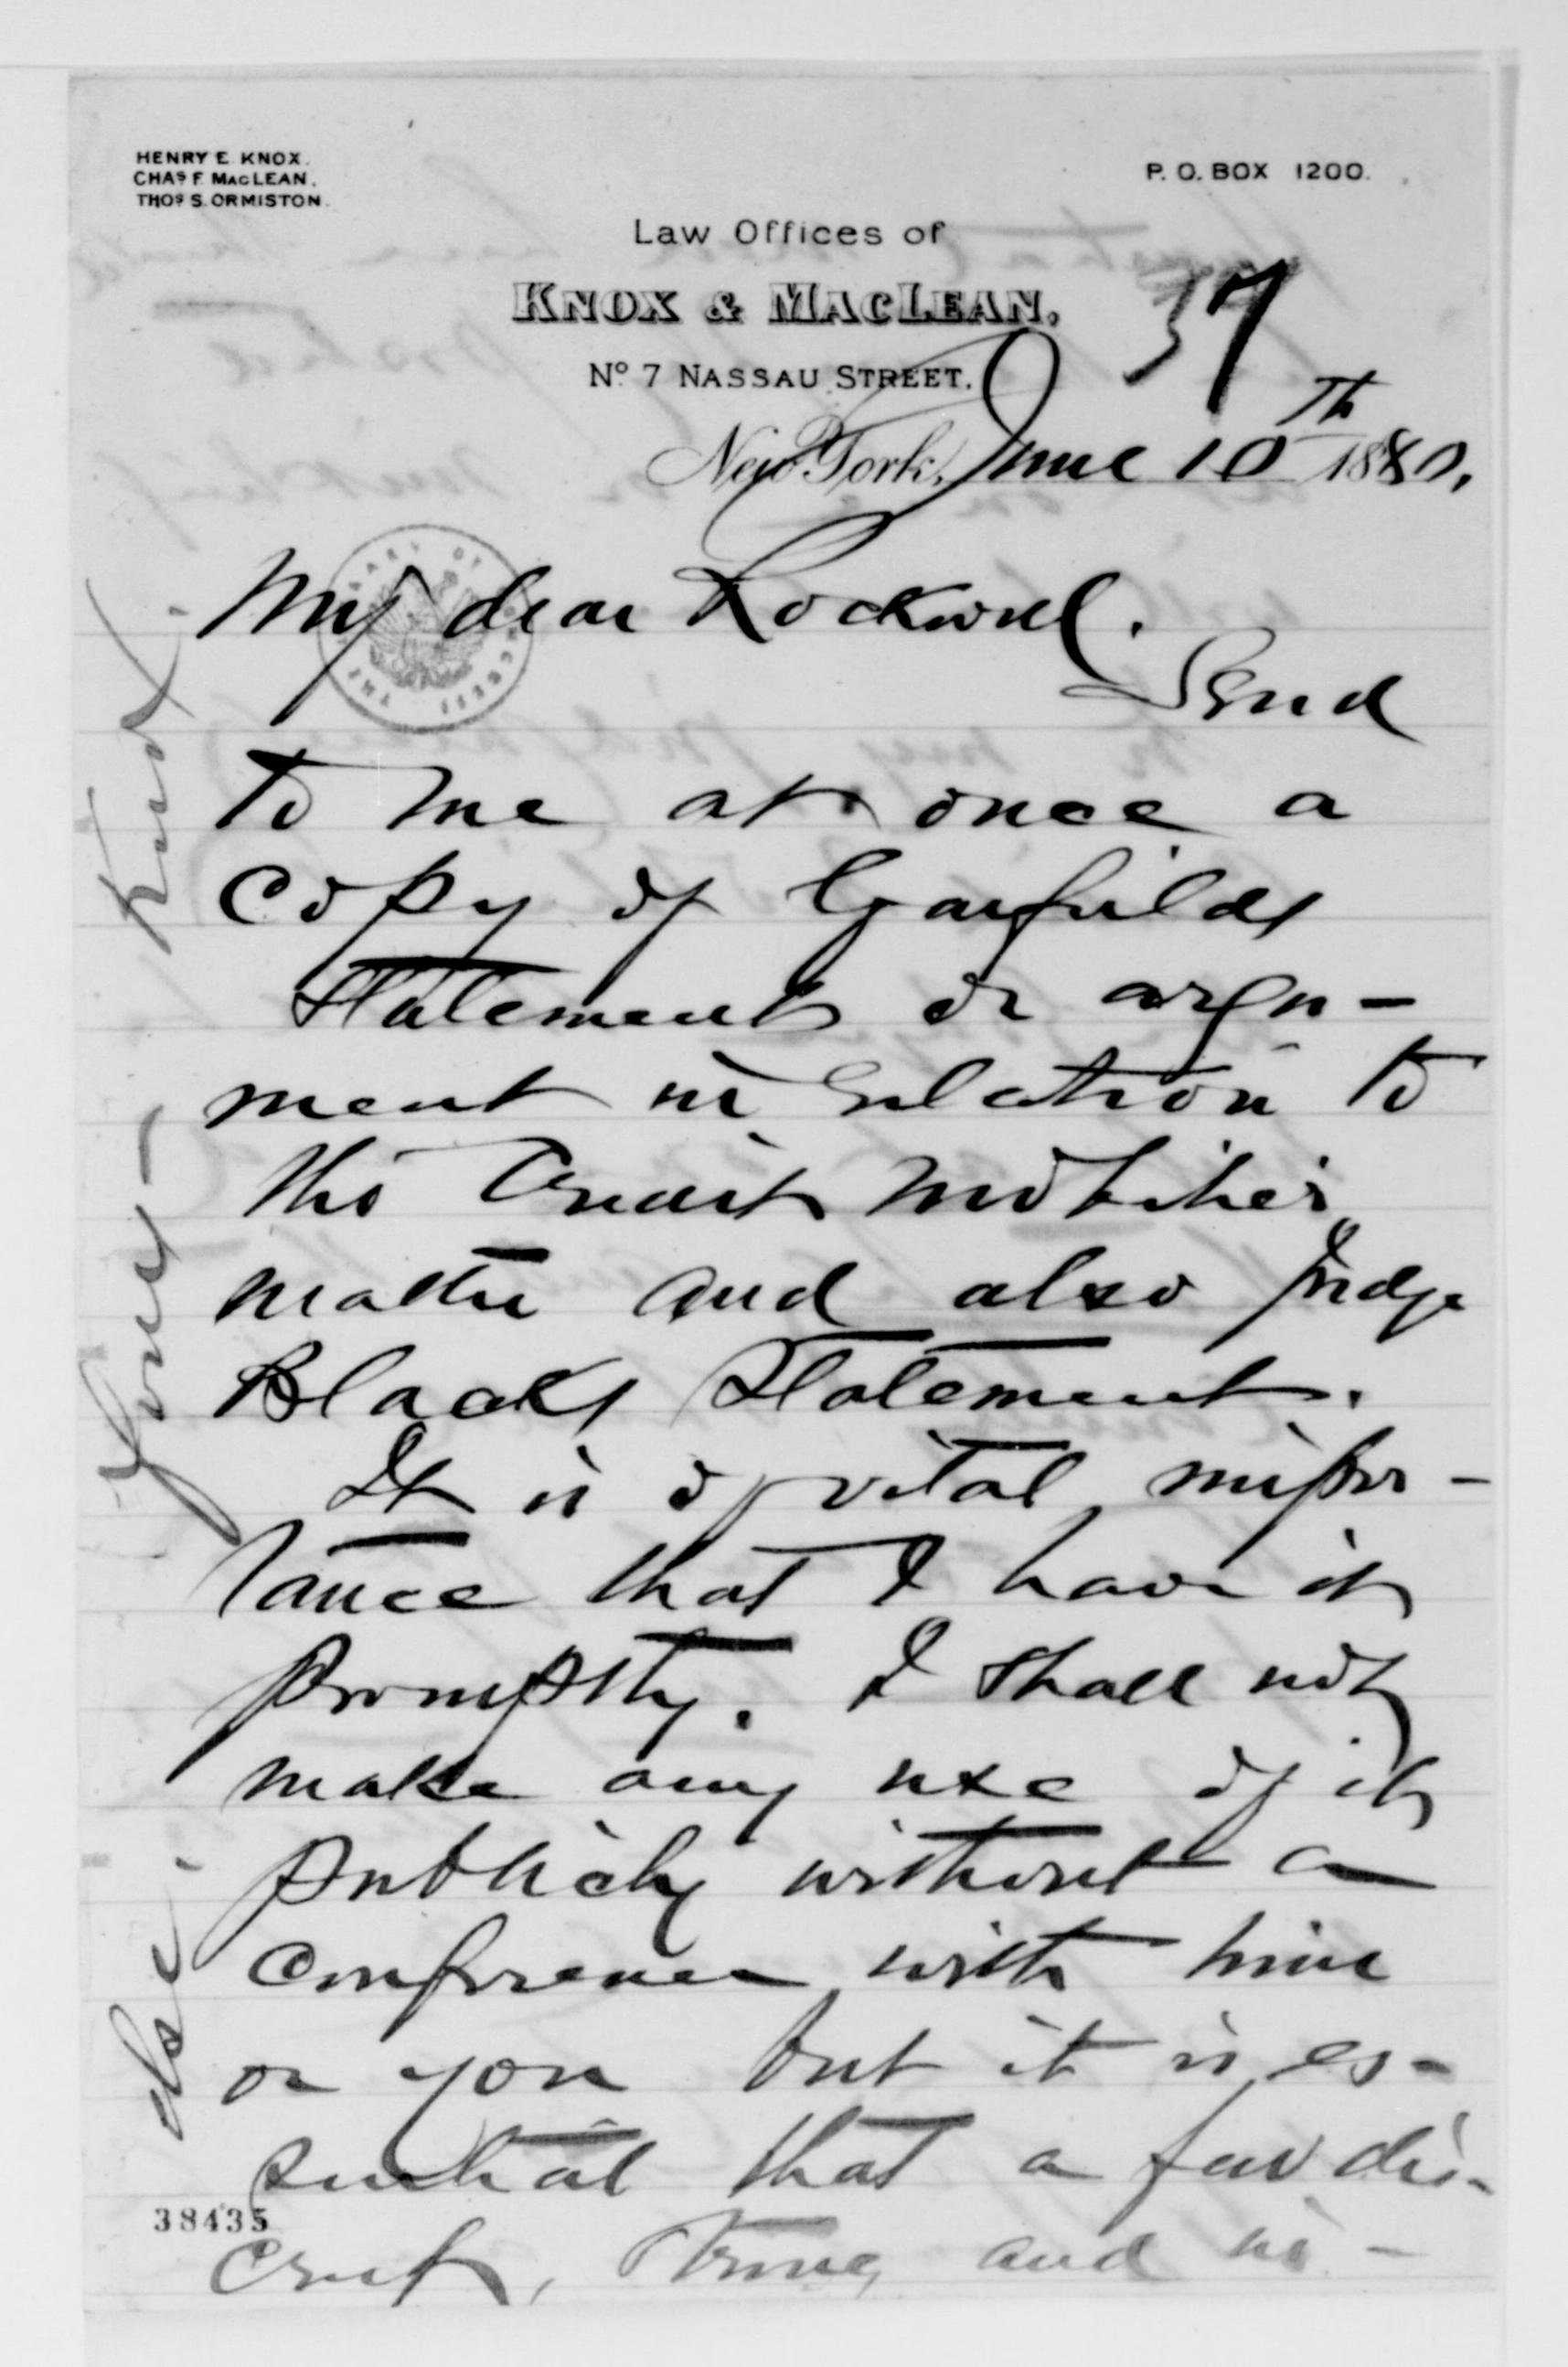 HENRY E. KNOX.
CHAS. F. MACLEAN.
THOS. S. ORMISTON.
P. O. BOX 1200.
Law Offices of
KNOX & MACLEAN,
37
No. 7 NASSAU STREET.
New York, June 10th 1880.
My dear Rockwell.
Send
to me at once a
copy of Garfields
statement or argu-
ment in relation to
the Credit Mobilier
matter and also Judge
Blacks statement.
It is of vital impor-
tance that I have it
promptly. I shall not
make any use of it
publicly without a
conference with him
or you but it is es-
sential that a few dis-
creet, strong and in-
38435
Yours
Knox.
THE LIBRARY OF CONGRESS